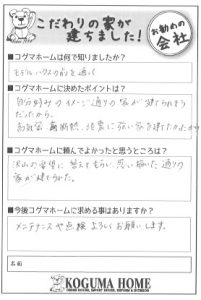 こだわりの家が
建ちました!
お勧めの
会社
■コグマホームは何で知りましたか?
モデルハウスの前を通って
■コグマホームに決めたポイントは?
自分好みのイメージ通りの家が建てられそう
だったから。
高気密、高断熱、地震に強い家を建てたかったから
■コグマホームに頼んでよかったと思うところは?
沢山の要望に答えてもらい思い描いた通りの
家が建てられた。
■今後コグマホームに求める事はありますか?
メンテナンスや点検よろしくお願いします。
名前
KOGUMA HOME